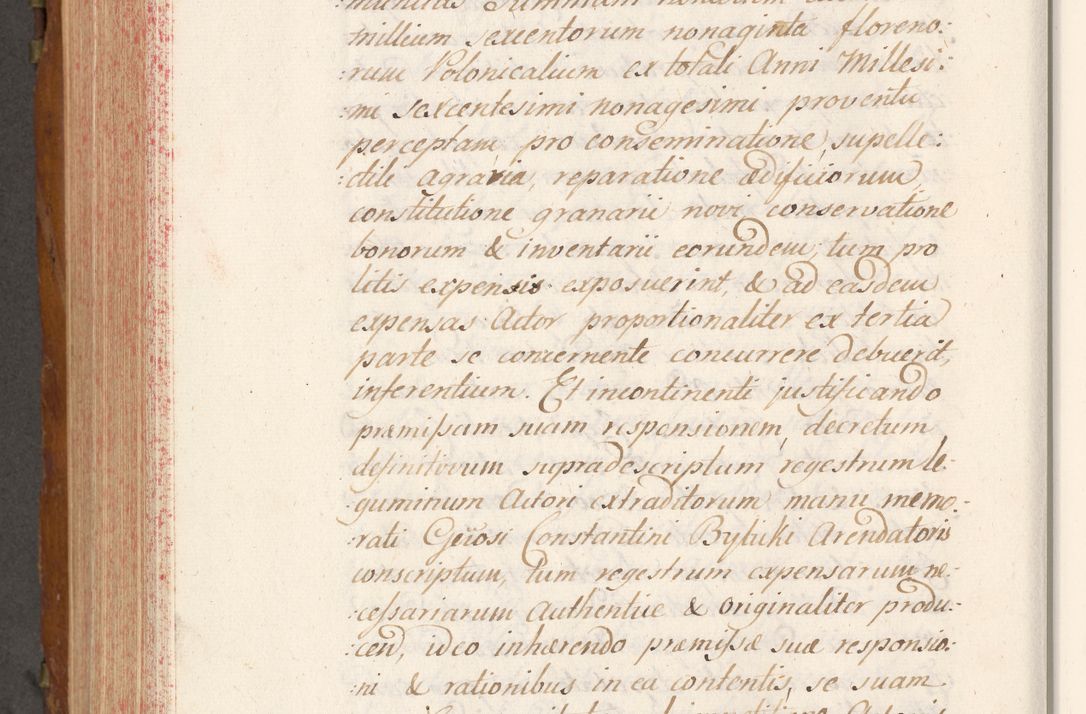 millium sexcentorum nonaginta floreno:
:rum Polonicalium ex totali Anni Millesi:
:mi sexcentesimi nonagesimi proventu
perceptam pro conseminatione, supelle:
:ctili agraria, reparatione ædificiorum,
constitutione granarii novi conservatione
bonorum & inventarii eorundem, tum pro
litis expensis exposuerint, & ad easdem
expensas Actor proportionaliter ex tertia
parte se concernente concurrere debuerit,
inferentium. Et incontinenti justificando
præmissam suam responsionem, decretum
definitivum supradescriptum, regestrum le:
guminum Actori extraditorum manu memo:
:rati Gerosi Constantini Bylicki Arendatoris
conscriptum, tum regestrum expensarum ne:
:cessariarum Authentice & originaliter produ:
:cen, ideo inhærendo præmissæ suæ responsio:
:ni & rationibus in ea contentis, se suam